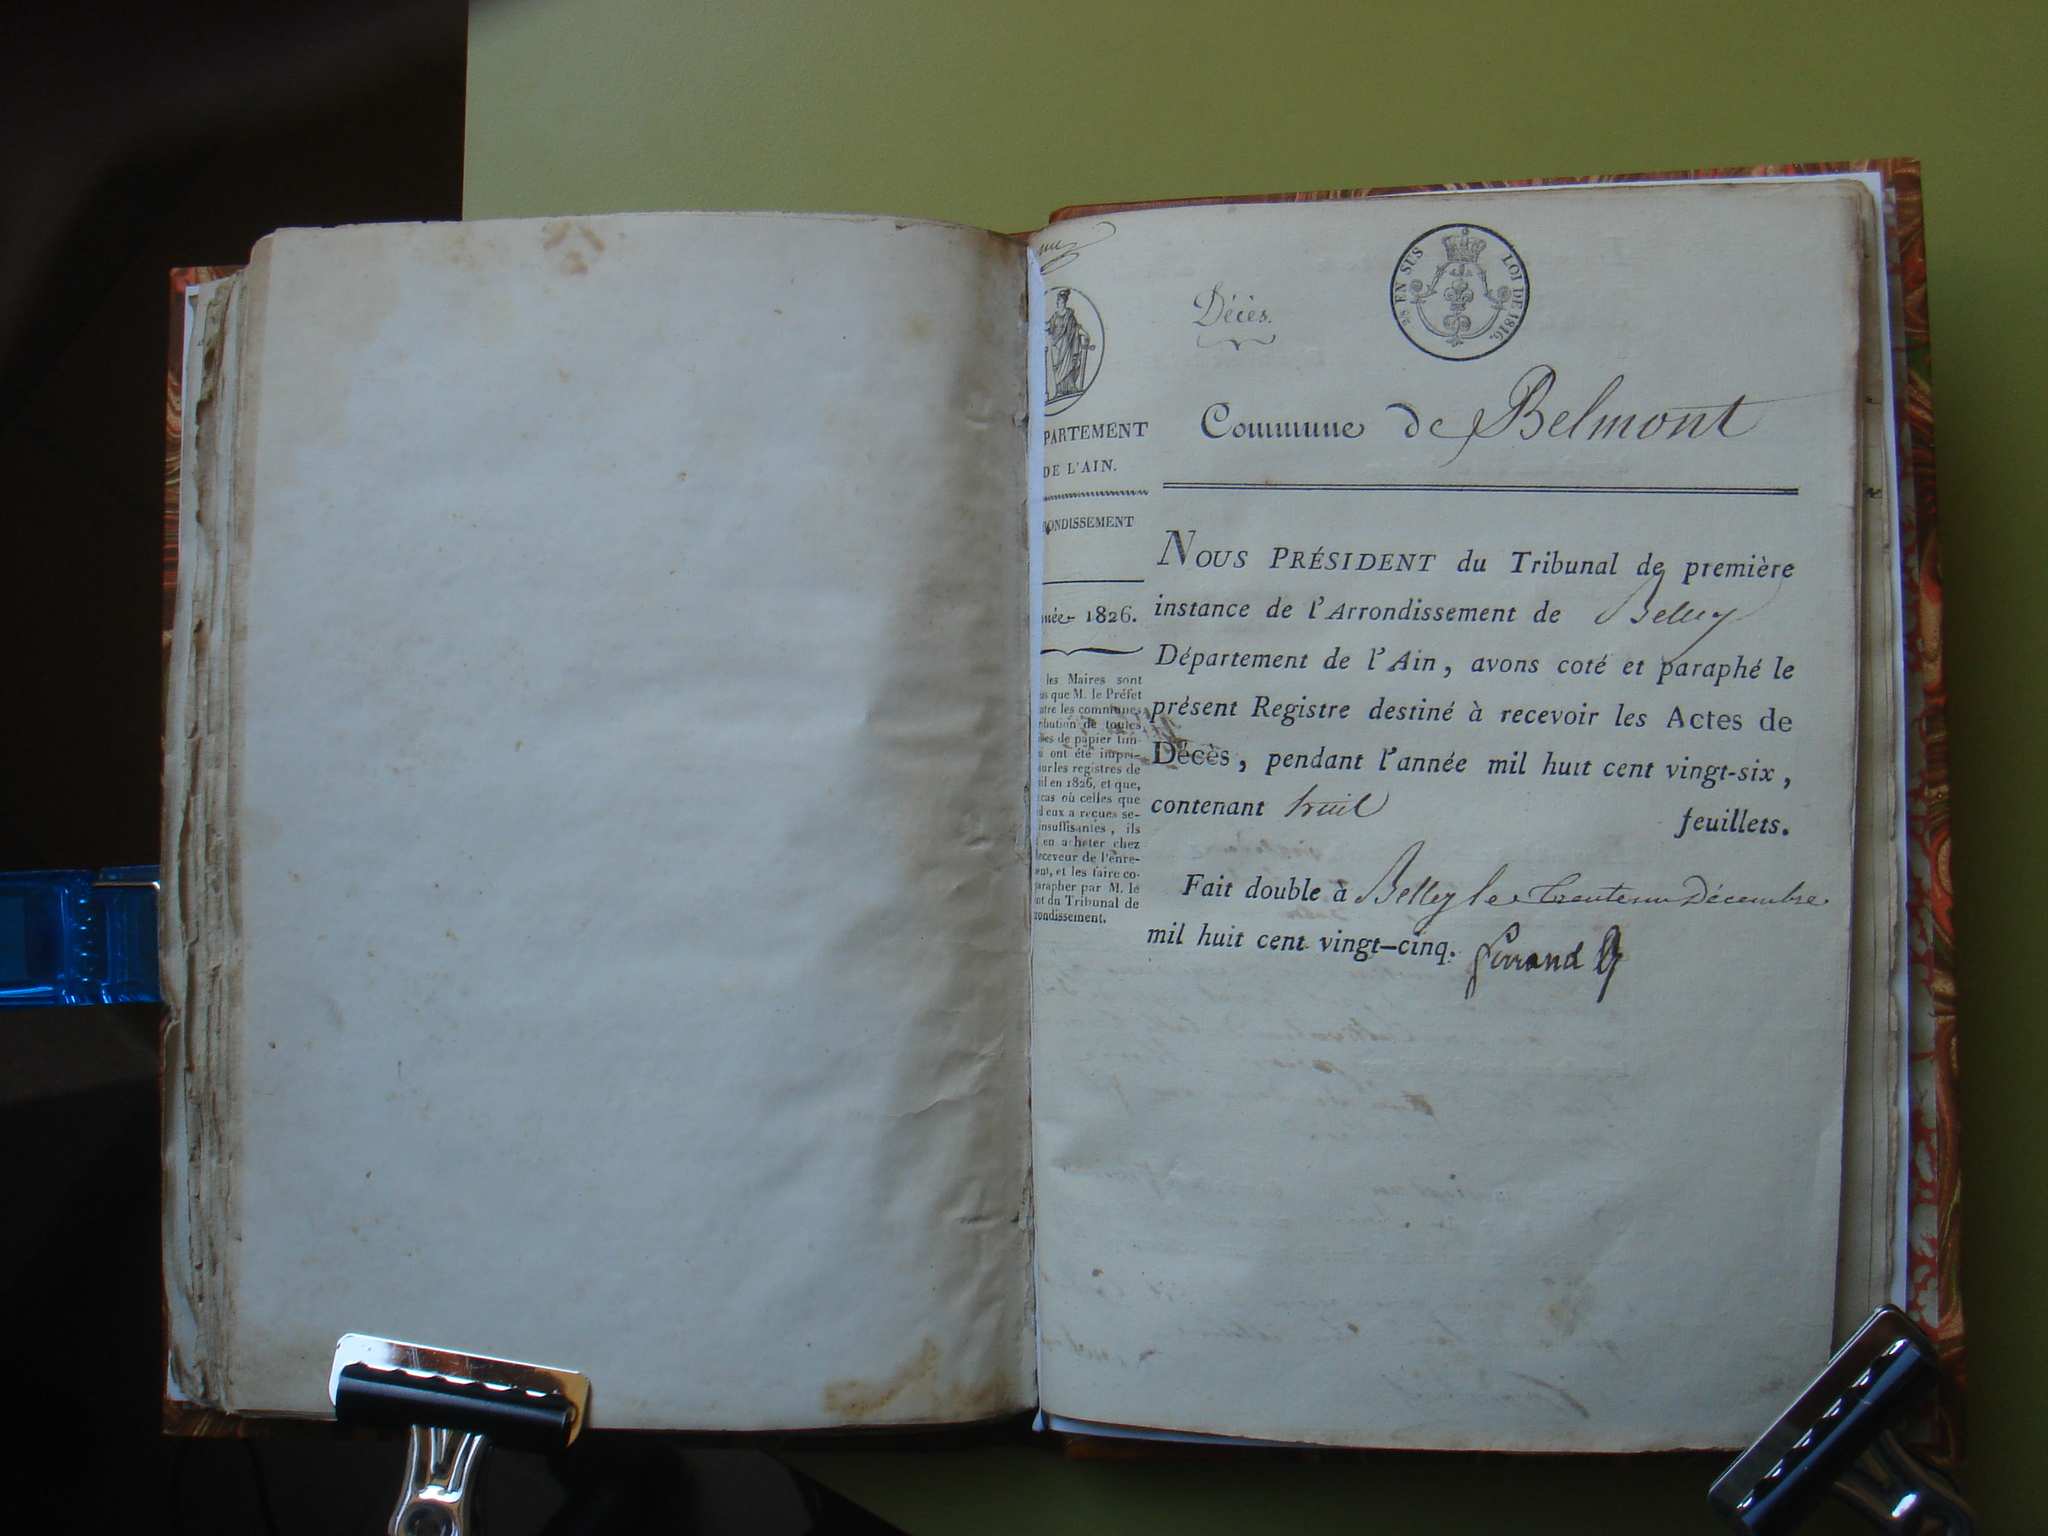 Décès.
2/5 EN SUS LOI DE 1816.
PARTEMENT
DE L'AIN.
ONDISSEMENT
née 1826.
les Maires sont
us que M. le Préfet
ntre les communes
ribution de toutes
lles de papier tim-
i ont été impri-
our les registres de
il en 1826, et que,
cas où celles que
d eux a reçues se-
insuffisantes, ils
en acheter chez
Receveur de l'enre-
ent, et les faire co-
parapher par M. le
nt du Tribunal de
rondissement.
Commune de Belmont
NOUS PRÉSIDENT du Tribunal de première
instance de l'Arrondissement de Belley
Département de l'Ain, avons coté et paraphé le
présent Registre destiné à recevoir les Actes de
Décès, pendant l'année mil huit cent vingt-six,
contenant huit feuillets.
Fait double à Belley le trente un Décembre
mil huit cent vingt-cinq.